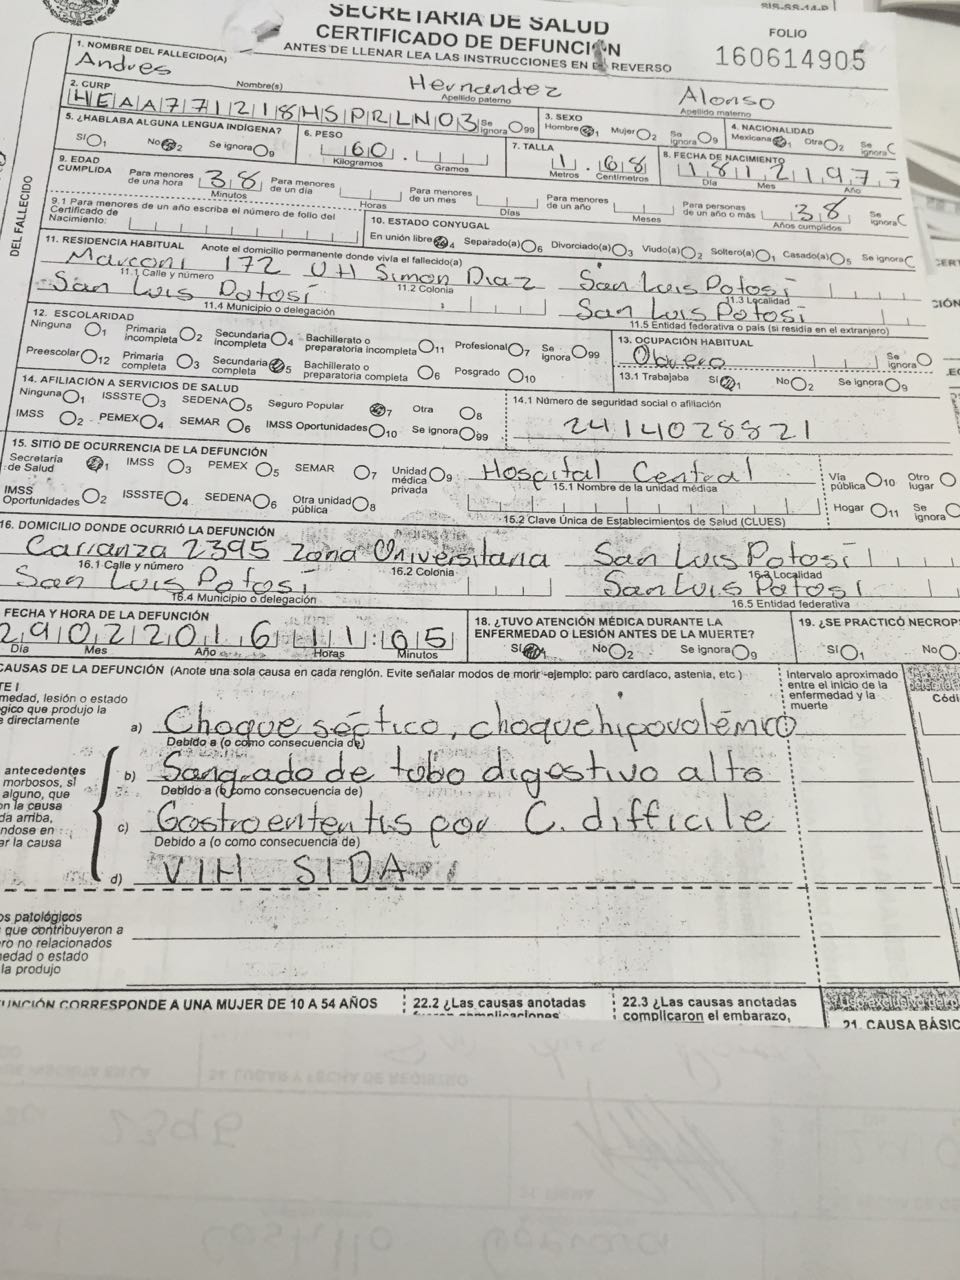 SECRETARIA DE SALUD
CERTIFICADO DE DEFUNCIÓN
ANTES DE LLENAR LEA LAS INSTRUCCIONES EN REVERSO
FOLIO
160614905
DEL FALLECIDO
1. NOMBRE DEL FALLECIDO(A)
Andres Hernandez Alonso
Nombre(s) Apellido paterno Apellido materno
2. CURP HEAA771218HSPRLN03 Se ignora 99
3. SEXO Hombre 1 Mujer 2 Se ignora 9
4. NACIONALIDAD Mexicana 1 Otra 2 Se ignora
5. ¿HABLABA ALGUNA LENGUA INDÍGENA?
SI 1 No 2 Se ignora 9
6. PESO 60 . Kilogramos Gramos
7. TALLA 1 . 68 Metros Centímetros
8. FECHA DE NACIMIENTO
18 12 1977
Día Mes Año
9. EDAD CUMPLIDA
Para menores de una hora 38 Minutos
Para menores de un día Horas
Para menores de un mes Días
Para menores de un año Meses
Para personas de un año o más 38 Años cumplidos Se ignora
9.1 Para menores de un año escriba el número de folio del Certificado de Nacimiento:
10. ESTADO CONYUGAL
En unión libre 4 Separado(a) 6 Divorciado(a) 3 Viudo(a) 2 Soltero(a) 1 Casado(a) 5 Se ignora
11. RESIDENCIA HABITUAL Anote el domicilio permanente donde vivía el fallecido(a)
Marconi 172 UH Simon Diaz San Luis Potosí
11.1 Calle y número 11.2 Colonia 11.3 Localidad
San Luis Potosí San Luis Potosí
11.4 Municipio o delegación 11.5 Entidad federativa o país (si residía en el extranjero)
12. ESCOLARIDAD
Ninguna 1 Primaria incompleta 2 Secundaria incompleta 4 Bachillerato o preparatoria incompleta 11 Profesional 7 Se ignora 99
Preescolar 12 Primaria completa 3 Secundaria completa 5 Bachillerato o preparatoria completa 6 Posgrado 10
13. OCUPACIÓN HABITUAL
Obrero Se ignora
13.1 Trabajaba Sí 1 No 2 Se ignora 9
14. AFILIACIÓN A SERVICIOS DE SALUD
Ninguna 1 ISSSTE 3 SEDENA 5 Seguro Popular 7 Otra 8
IMSS 2 PEMEX 4 SEMAR 6 IMSS Oportunidades 10 Se ignora 99
14.1 Número de seguridad social o afiliación
2414028821
15. SITIO DE OCURRENCIA DE LA DEFUNCIÓN
Secretaría de Salud 1 IMSS 3 PEMEX 5 SEMAR 7 Unidad médica privada 9
IMSS Oportunidades 2 ISSSTE 4 SEDENA 6 Otra unidad pública 8
Hospital Central
15.1 Nombre de la unidad médica
15.2 Clave Única de Establecimientos de Salud (CLUES)
Vía pública 10 Otro lugar
Hogar 11 Se ignora
16. DOMICILIO DONDE OCURRIÓ LA DEFUNCIÓN
Carranza 2395 Zona Universitaria San Luis Potosí
16.1 Calle y número 16.2 Colonia 16.3 Localidad
San Luis Potosí San Luis Potosí
16.4 Municipio o delegación 16.5 Entidad federativa
FECHA Y HORA DE LA DEFUNCIÓN
29 02 2016 11:05
Día Mes Año Horas Minutos
18. ¿TUVO ATENCIÓN MÉDICA DURANTE LA ENFERMEDAD O LESIÓN ANTES DE LA MUERTE?
SI 1 No 2 Se ignora 9
19. ¿SE PRACTICÓ NECROP
SI 1 No
CAUSAS DE LA DEFUNCIÓN (Anote una sola causa en cada renglón. Evite señalar modos de morir -ejemplo: paro cardíaco, astenia, etc)
Intervalo aproximado entre el inicio de la enfermedad y la muerte
Códi
TE I
medad, lesión o estado
gico que produjo la
e directamente
a) Choque séctico, choque hipovolémico
Debido a (o como consecuencia de)
antecedentes
morbosos, si
alguno, que
on la causa
da arriba,
ndose en
ar la causa
b) Sangrado de tobo digostivo alto
Debido a (o como consecuencia de)
c) Gastroententis por C. difficile
Debido a (o como consecuencia de)
d) VIH SIDA
os patológicos
que contribuyeron a
ro no relacionados
medad o estado
la produjo
UNCIÓN CORRESPONDE A UNA MUJER DE 10 A 54 AÑOS
22.2 ¿Las causas anotadas
22.3 ¿Las causas anotadas
complicaron el embarazo,
21. CAUSA BÁSIC